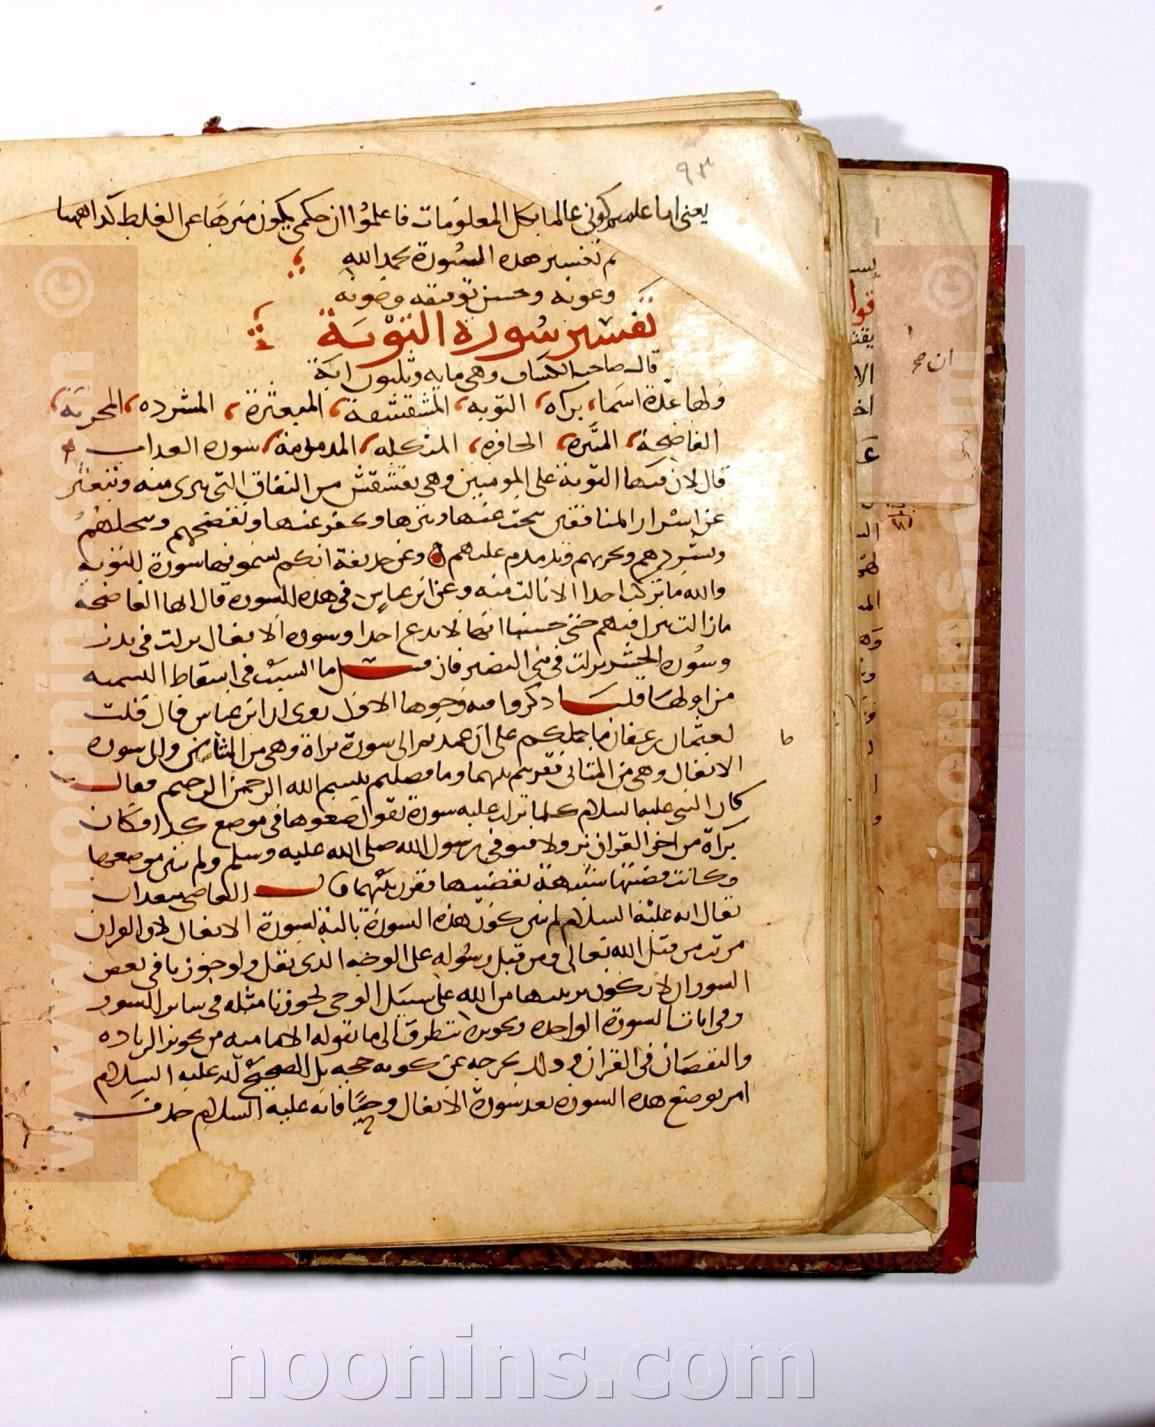 ٩٣
يعنى اما علمتم كونى عالما بكل المعلومات فاعلموا ان حكمى يكون منزها عن الغلط كذا ههنا
تم تفسير هذه السورة بحمد الله
وعونه وحسن توفيقه وصونه
تفسير سورة التوبة
قال صاحب الكشاف وهى مايه وثلثون اية
ولها عدة اسما براه التوبه المقشقشة المبعثرة المشرده المخزية
الفاضحة المثيرة الحافره المنكله المدمدمة سورة العذاب
قال لان فيها التوبة على المومنين وهى تقشقش من النفاق التى تبرى منه وتبعثر
عن اسرار المنافقين تبحث عنها وتثيرها وتحفر عنها وتفضحهم وتنكلهم
وتشردهم وتخزيهم وتدمدم عليهم وعن حذيفة انكم تسمونها سورة التوبة
والله ما تركت احدا الا نالت منه وعن ابن عباس فى هذه السورة قال انها الفاضحة
ما زالت تنزل فيهم حتى حسبنا انها لا تدع احدا وسورة الانفال نزلت فى بدر
وسورة الحشر نزلت فى بنى النضير فان قيل ما السبب فى اسقاط التسمية
من اولها قلنا ذكروا فيه وجوها الاول روى ان ابن عباس قال قلت
لعثمان بن عفان ما حملكم على ان عمدتم الى سورة براة وهى من المئين والى سورة
الانفال وهى من المثانى فقرنتم بينهما وما فصلتم ببسم الله الرحمن الرحيم فقال
كان النبى عليه السلام كلما نزلت عليه سورة يقول ضعوها فى موضع كذا وكانت
براة من اخر القران نزولا فتوفى رسول الله صلى الله عليه وسلم ولم يبين موضعها
وكانت قصتها شبيهة بقصتها فقرن بينهما قال القاضى يبعد ان
يقال انه عليه السلام لم يبين كون هذه السورة تالية لسورة الانفال لان القران
مرتب من قبل الله تعالى ومن قبل رسوله على الوجه الذى نقل ولو جوزنا فى بعض
السور ان لا يكون ترتيبها من الله على سبيل الوحى لجوزنا مثله فى سائر السور
وفى ايات السورة الواحدة وتجويزه يتطرق الى ما تقوله الامامية من تجويز الزيادة
والنقصان فى القران وذلك يخرجه عن كونه حجة بل الصحيح انه عليه السلام
امر بوضع هذه السورة بعد سورة الانفال وحيا فانه عليه السلام حذف
ان صح
www.noonins.com
www.noonins.com
noonins.com